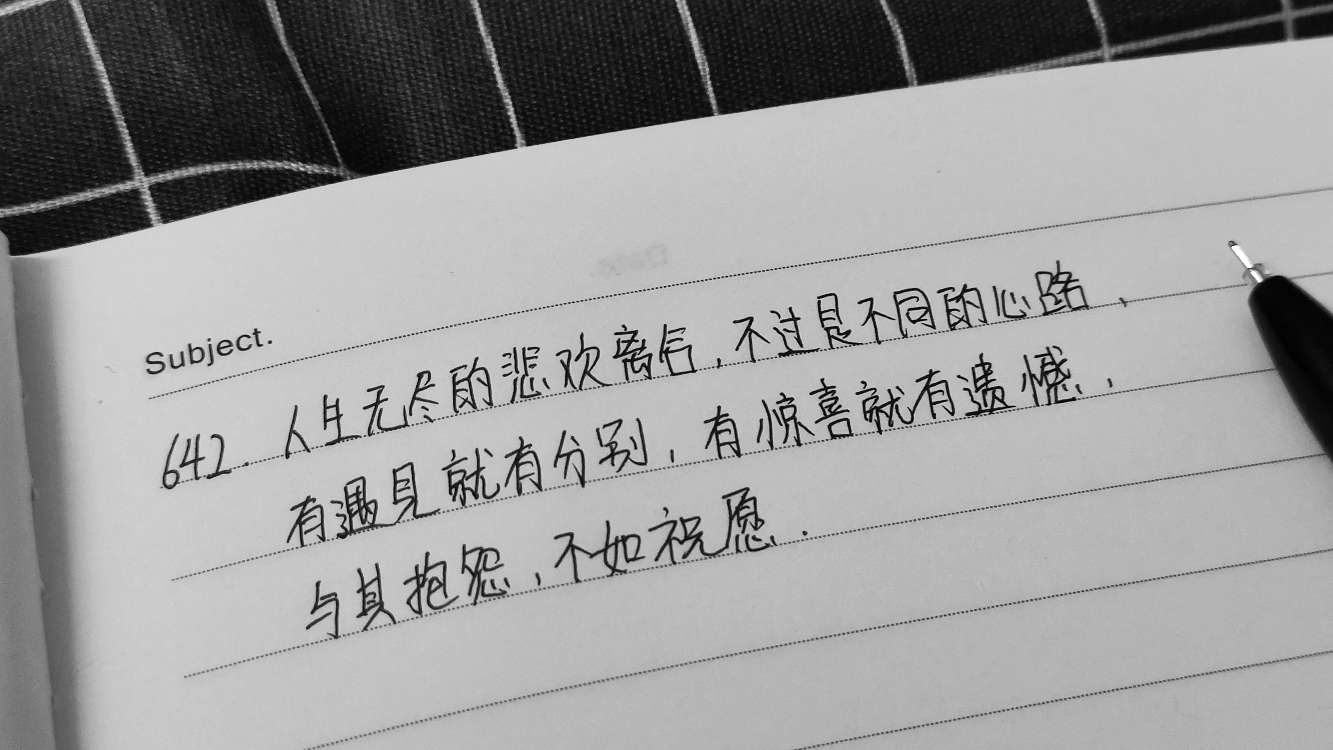 Subject.
642. 人生无尽的悲欢离合,不过是不同的心路,
有遇见就有分别,有惊喜就有遗憾,
与其抱怨,不如祝愿.